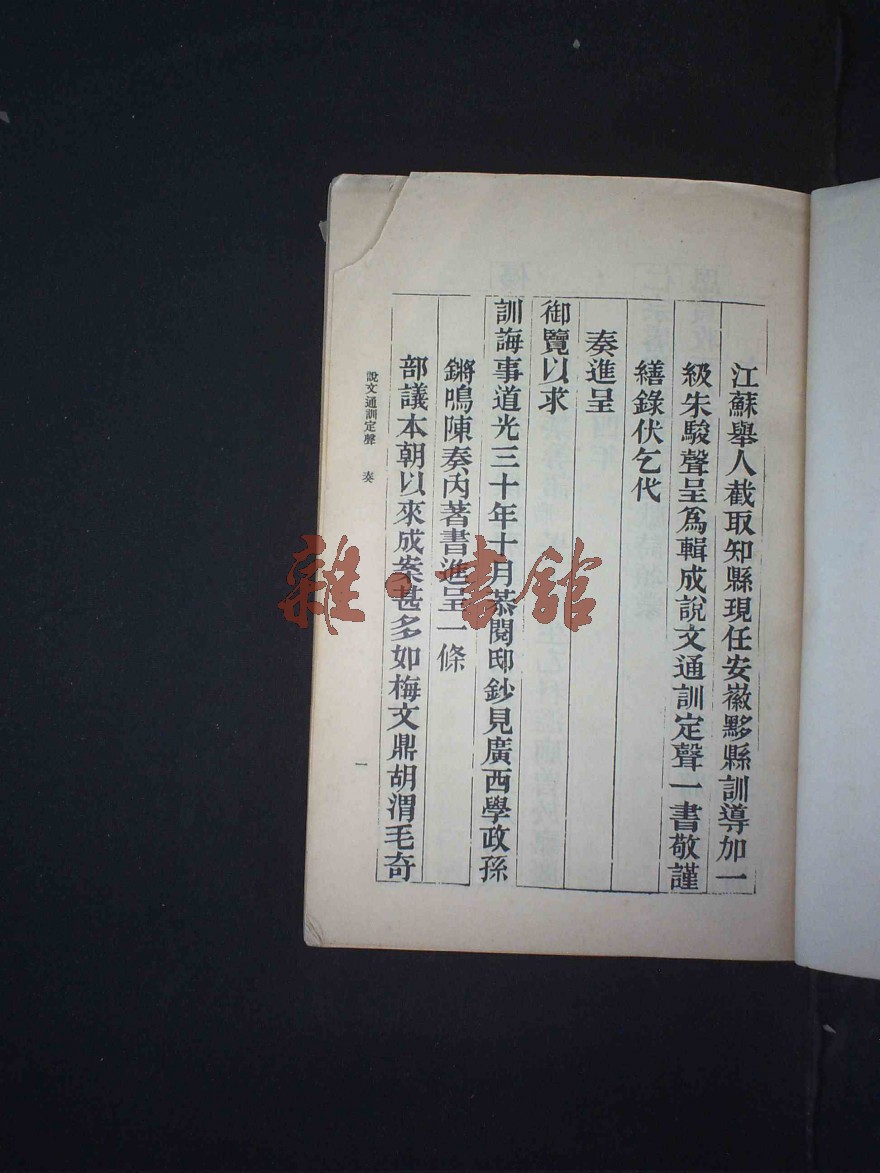 江蘇舉人截取知縣現任安徽黟縣訓導加一
級朱駿聲呈爲輯成說文通訓定聲一書敬謹
繕錄伏乞代
奏進呈
御覽以求
訓誨事道光三十年十月恭閱邸鈔見廣西學政孫
鏘鳴陳奏內著書進呈一條
部議本朝以來成案甚多如梅文鼎胡渭毛奇
說文通訓定聲 奏 一
雜·書館